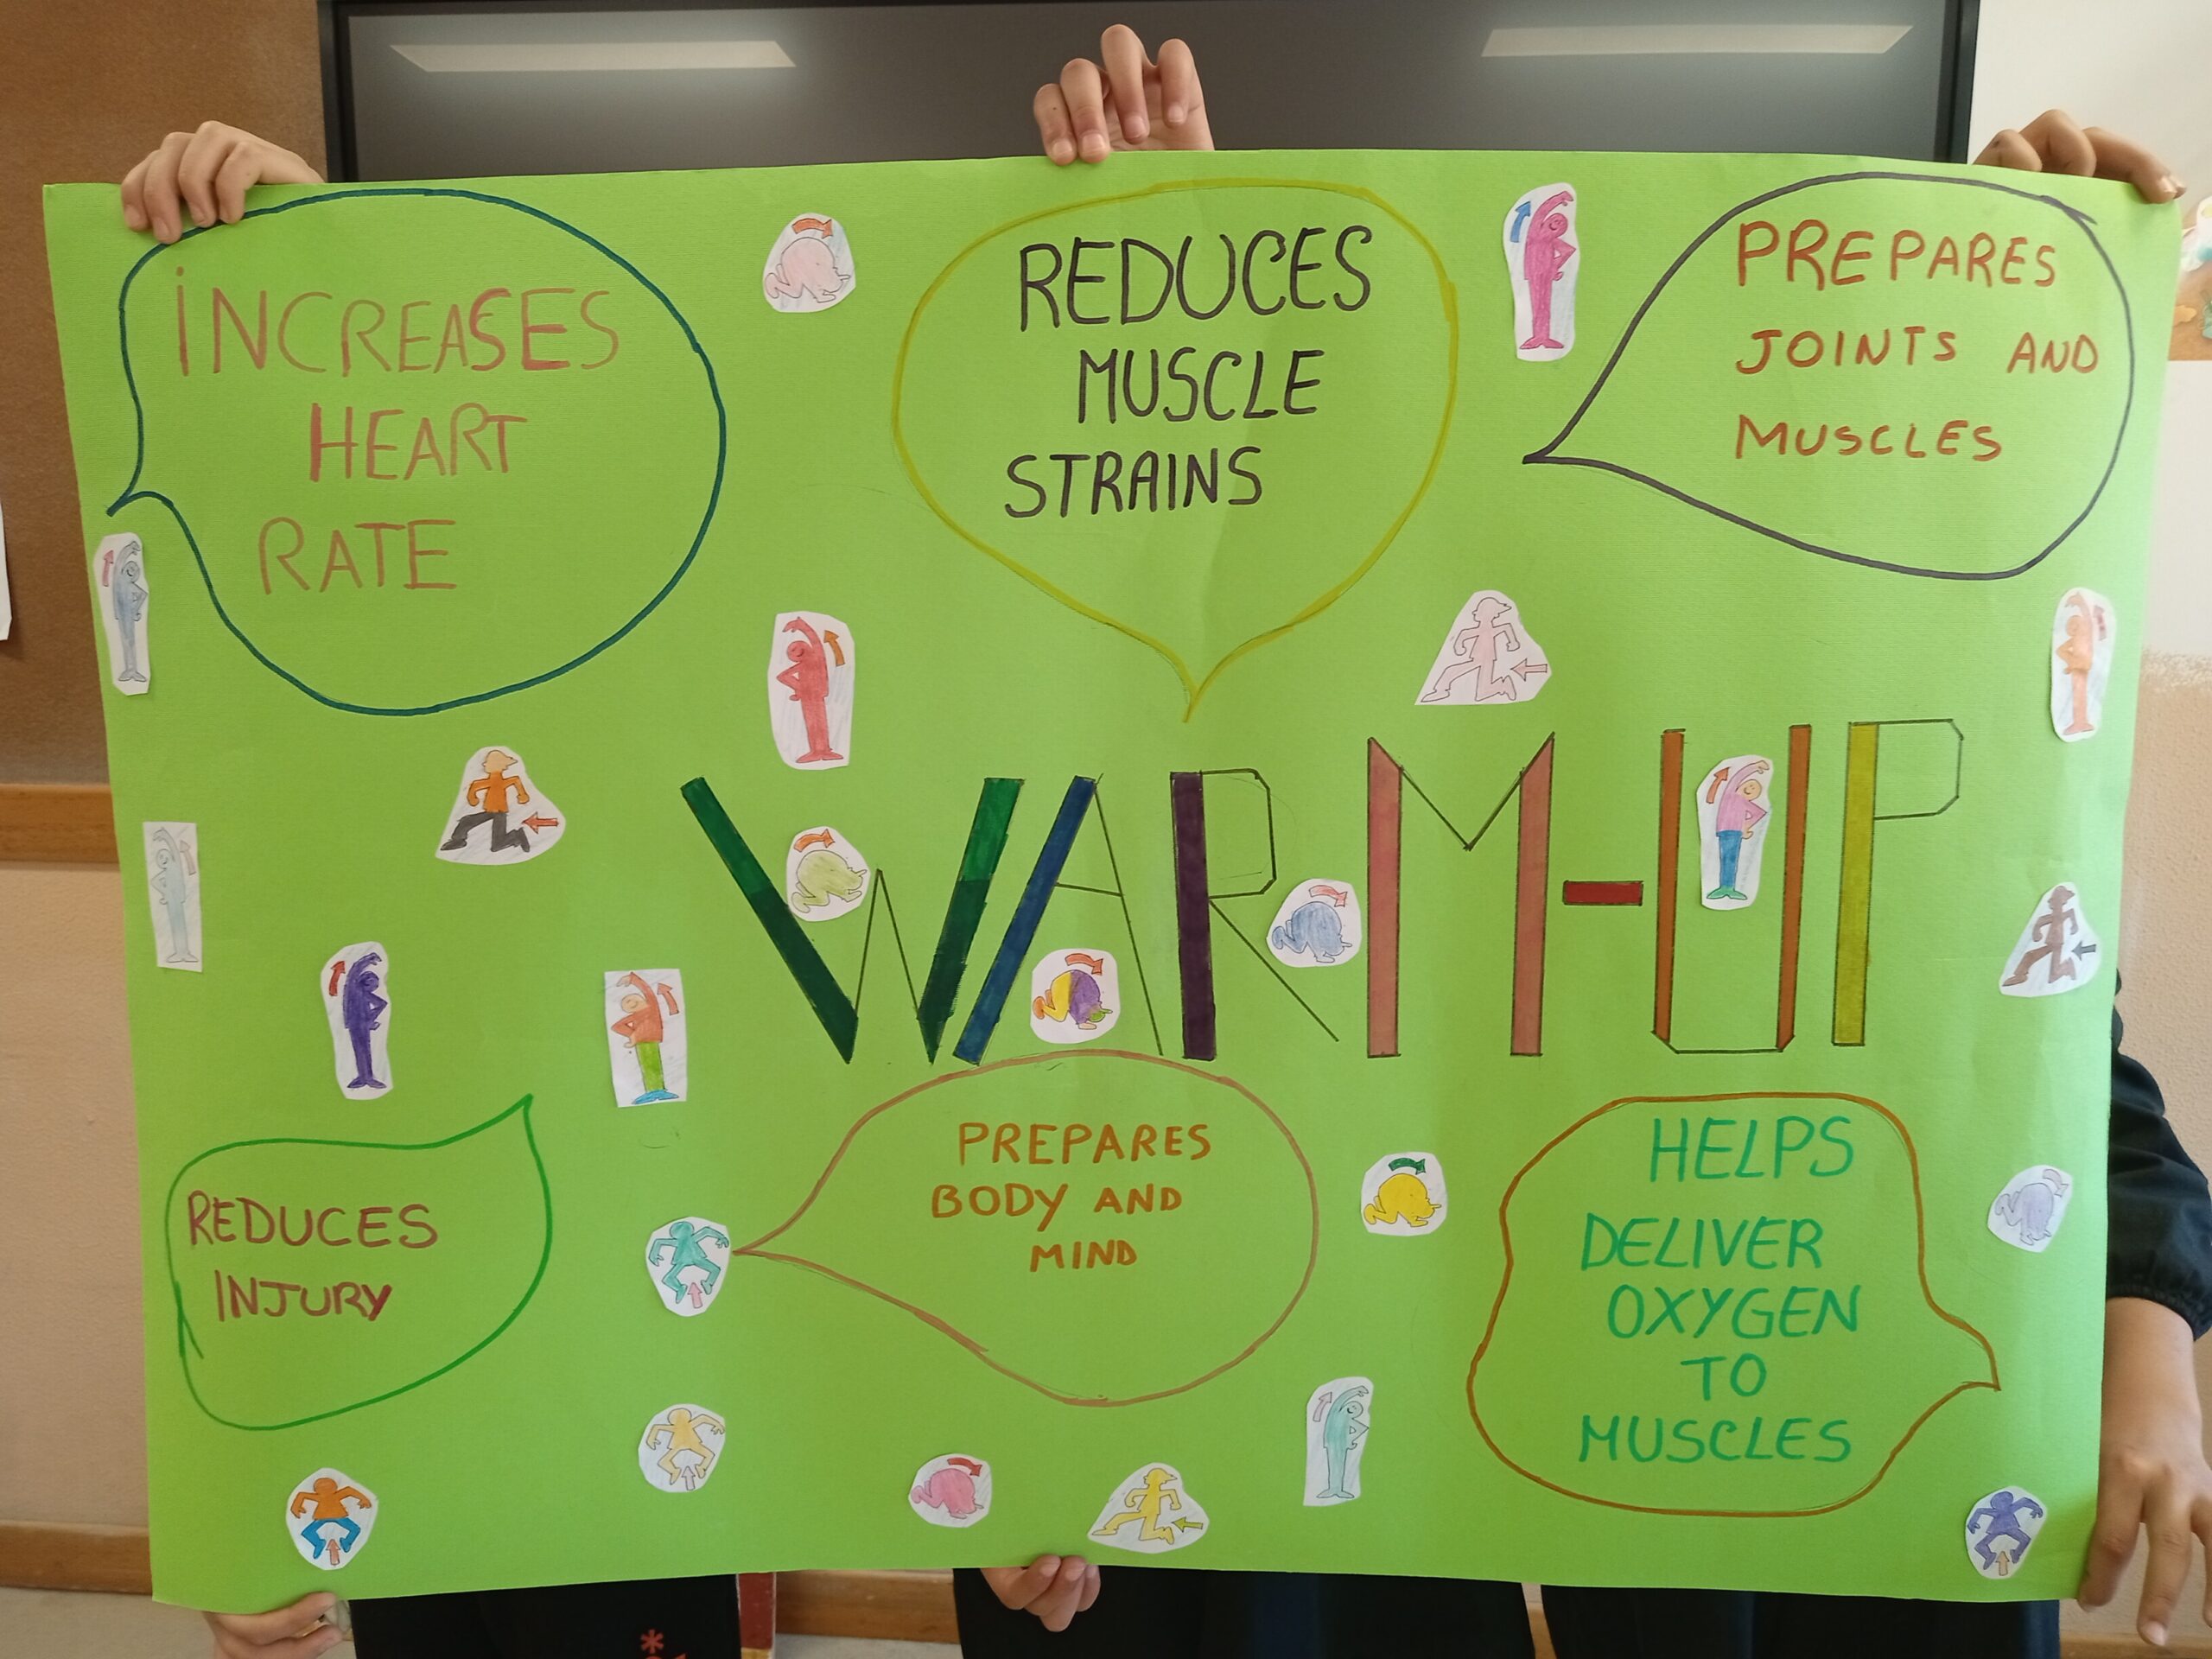 İNCREASES
HEART
RATE
REDUCES
MUSCLE
STRAINS
PREPARES
JOINTS AND
MUSCLES
WARM-UP
REDUCES
INJURY
PREPARES
BODY AND
MIND
HELPS
DELIVER
OXYGEN
TO
MUSCLES